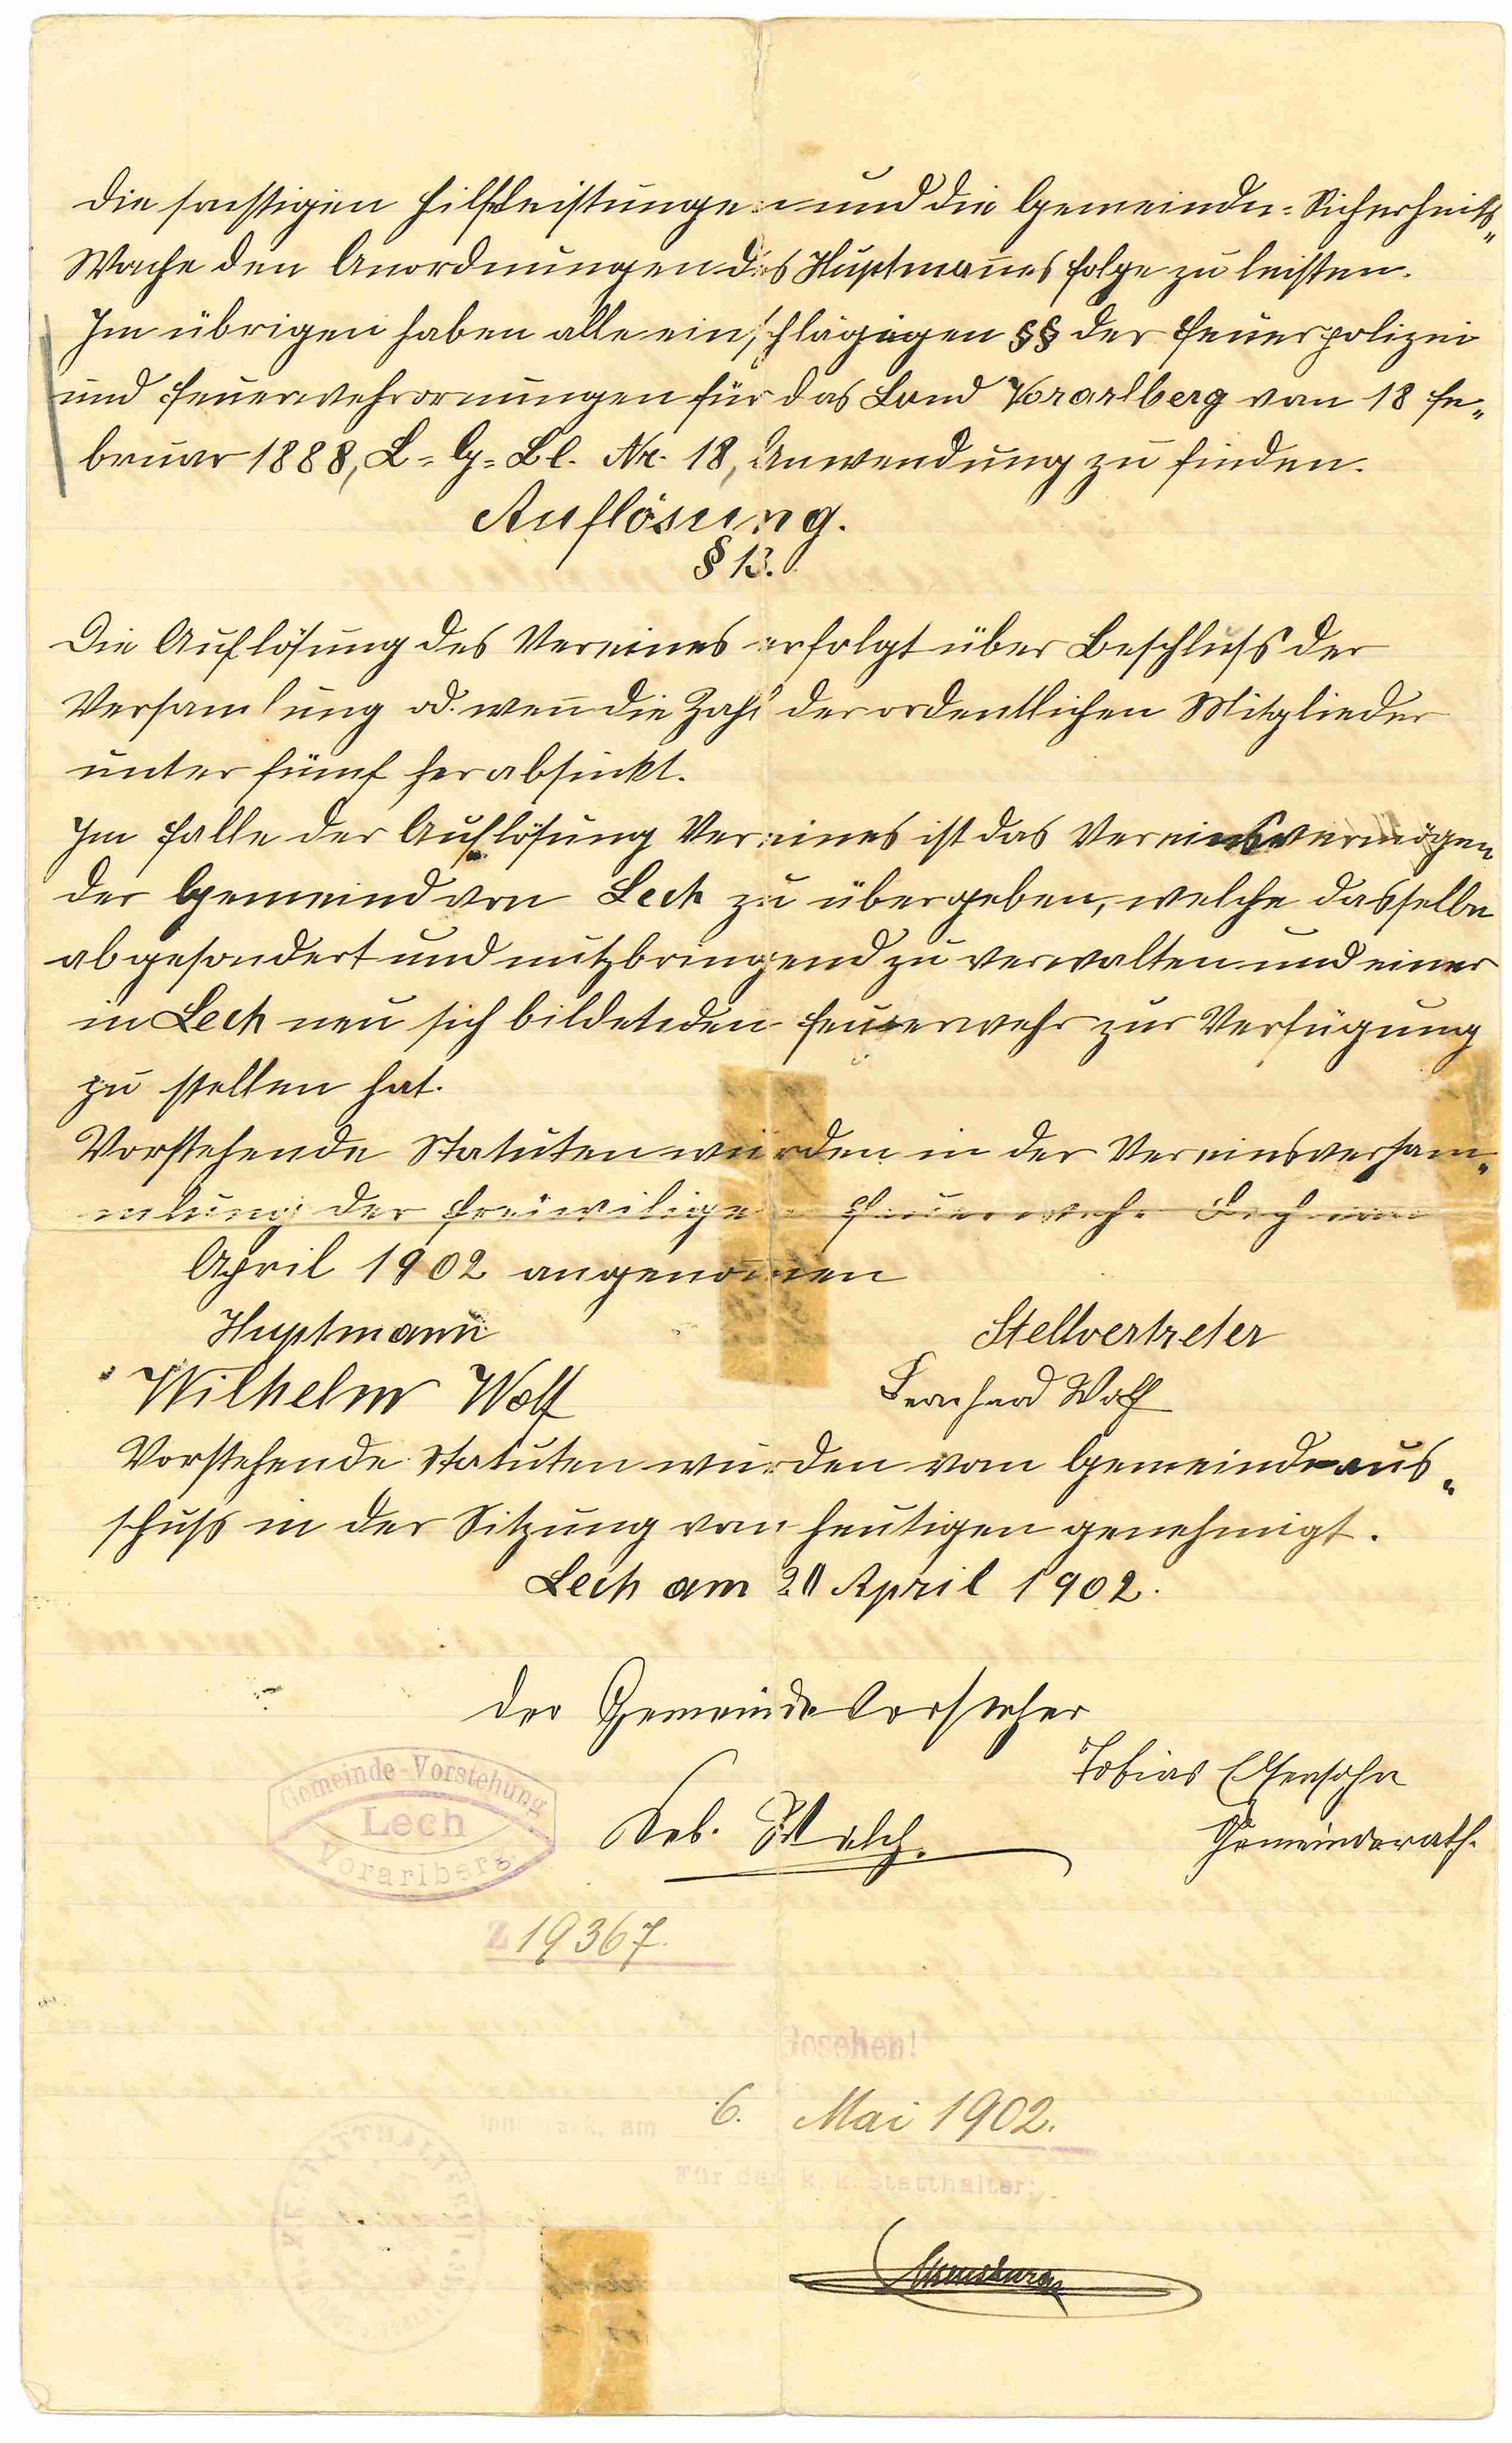 die sonstigen Hilfsleistungen und die Gemeinde-Sicherheits„
Wache den Anordnungen des Huptmanes folge zu leisten.
Im übrigen haben alle einschlägigen §§ der Feuerpolizei
und Feuerwehrornungen für das Land Vorarlberg vom 18 Fe„
bruar 1888, L-G-Bl. Nr. 18, Anwendung zu finden.
Auflösung.
§ 13.
Die Auflösung des Vereines erfolgt über Beschluss der
Versamlung od. wen̄ die Zahl der ordentlichen Mitglieder
unter fünf herabsinkt.
Im Falle der Auflösung Vereines ist das Vereinsvermögen
der Gemeind von Lech zu übergeben, welche dasselbe
abgesondert und nutzbringend zu verwalten und einer
in Lech neu sich bildetden Feuerwehr zur Verfügung
zu stellen hat.
Vorstehende Statuten wurden in der Vereinsversam„
mlung der freiwilige Feuerwehr Lech vom
April 1902 angenomen
Huptmann
Stellvertreter
Wilhelm Wolf
Bernhard Wolf
Vorstehende Statuten wurden vom Gemeindeaus„
schuss in der Sitzung vom heutigen genehmigt.
Lech am 20 April 1902.
der Gemeindevorsteher
Tobias Elsensohn
Gemeinde-Vorstehung
Lech
Vorarlberg
Seb. Walch.
Gemeinderath.
Z 19367.
Gesehen!
Innsbruck, am 6. Mai 1902.
Für den k. k. Statthalter:
K. K. STATTHALTEREI